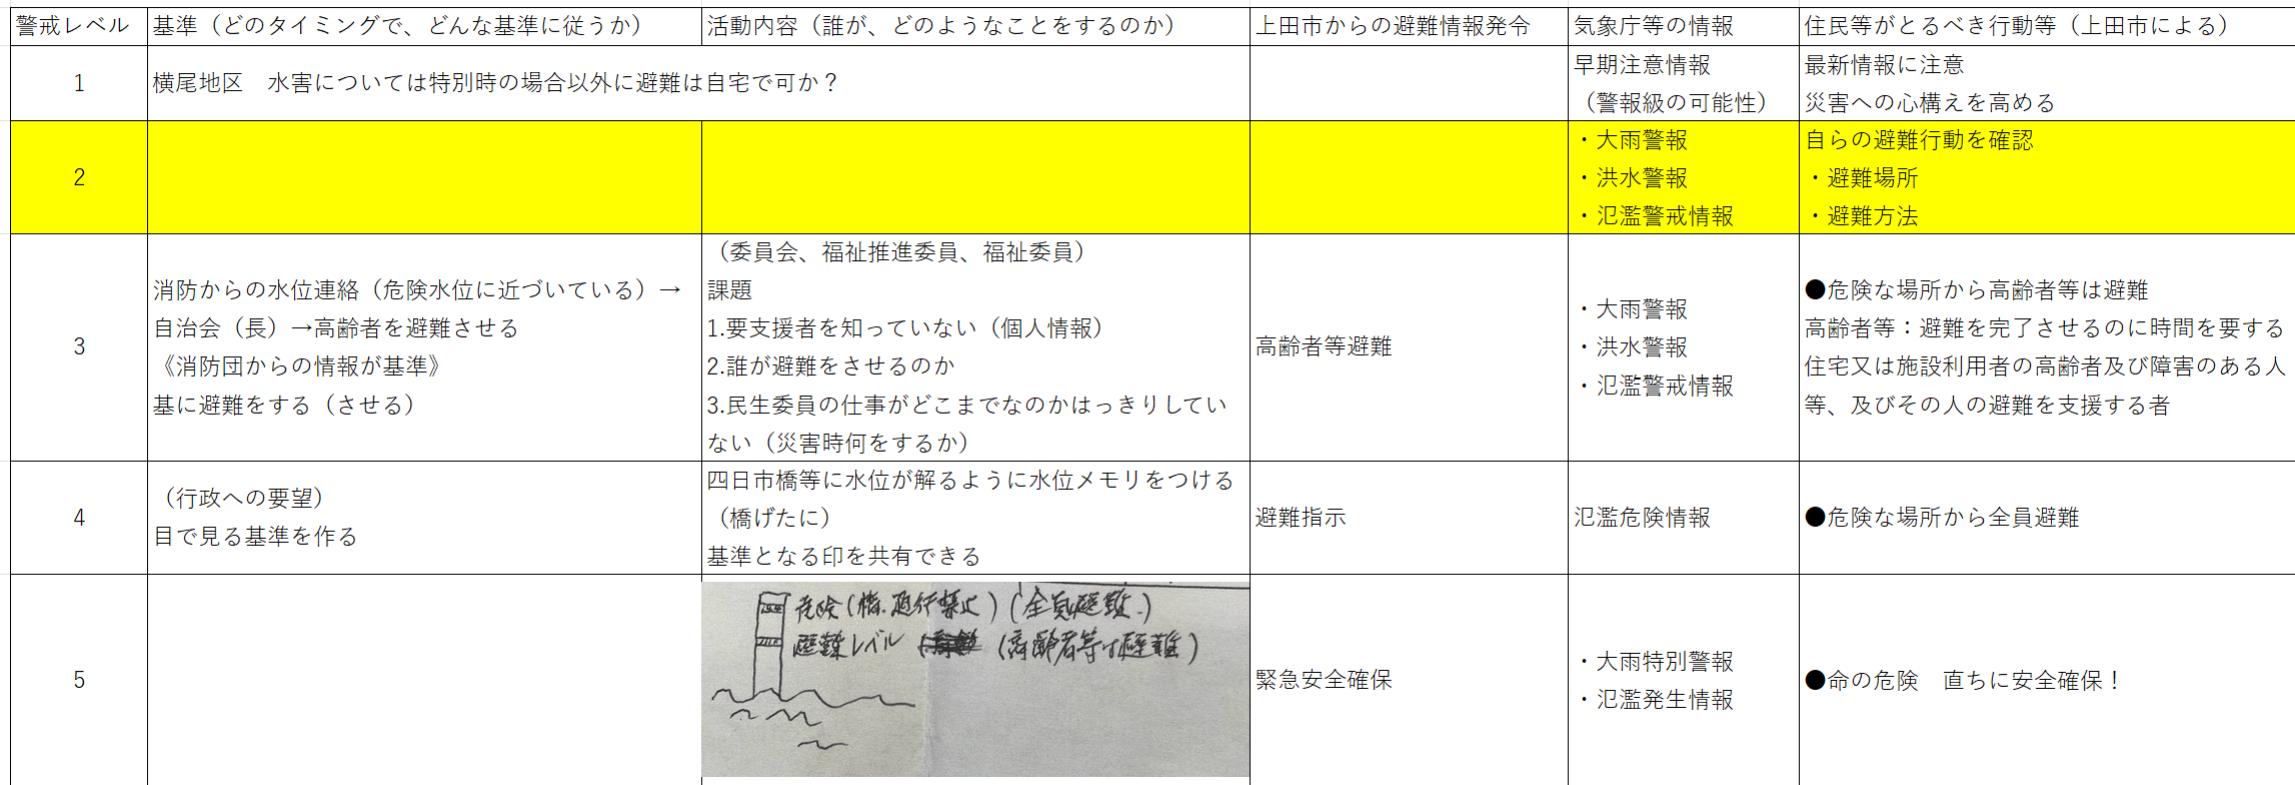 警戒レベル
基準（どのタイミングで、どんな基準に従うか）
活動内容（誰が、どのようなことをするのか）
上田市からの避難情報発令
気象庁等の情報
住民等がとるべき行動等（上田市による）
1
横尾地区　水害については特別時の場合以外に避難は自宅で可か？
早期注意情報
（警報級の可能性）
最新情報に注意
災害への心構えを高める
2
・大雨警報
・洪水警報
・氾濫警戒情報
自らの避難行動を確認
・避難場所
・避難方法
3
消防からの水位連絡（危険水位に近づいている）→
自治会（長）→高齢者を避難させる
《消防団からの情報が基準》
基に避難をする（させる）
（委員会、福祉推進委員、福祉委員）
課題
1.要支援者を知っていない（個人情報）
2.誰が避難をさせるのか
3.民生委員の仕事がどこまでなのかはっきりしてい
ない（災害時何をするか）
高齢者等避難
・大雨警報
・洪水警報
・氾濫警戒情報
●危険な場所から高齢者等は避難
高齢者等：避難を完了させるのに時間を要する
住宅又は施設利用者の高齢者及び障害のある人
等、及びその人の避難を支援する者
4
（行政への要望）
目で見る基準を作る
四日市橋等に水位が解るように水位メモリをつける
（橋げたに）
基準となる印を共有できる
避難指示
氾濫危険情報
●危険な場所から全員避難
5
危険（橋.通行禁止）（全員避難.）
避難レベル （高齢者等は避難）
緊急安全確保
・大雨特別警報
・氾濫発生情報
●命の危険　直ちに安全確保！